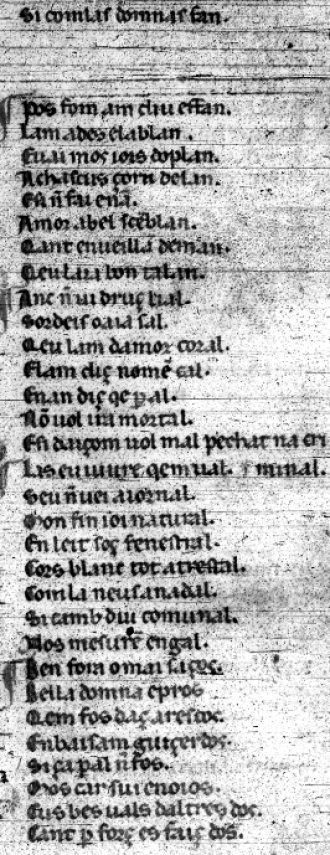 Si comlas domnas fan.
Pos fom am diu essan.
Lam ades elablan.
Eu ai mos iois doplan.
A chascus corn delan.
Es n̄ fai enā.
Amor abel scēblan.
Cant enueilla deman.
Qeu laia bon talan.
Anc n̄ ui druç lial.
Sordeis oaia sal.
Qeu lam damor coral.
Elam diç nomē cal.
Enan diç qe p al.
Nō uol ira mortal.
Esi daiçom uol mal pechat na cri
Las eu uiure qem ual. minal.
Seu n̄ uei aiornal.
Mon fin ioi natural.
En leit soç fenestral.
Cors blanc tot atrestal.
Com la neus a nadal.
Si camb dui comunal.
Nos mesurē engal.
Ben fora omai saços.
Bella domna epros
Qem fos daç arescoc.
En baisam guiçerdos.
Si ça p al n̄ fos.
Mos car sui enoios.
Eus bes uals daltres dos.
Cant p força es faiç dos.